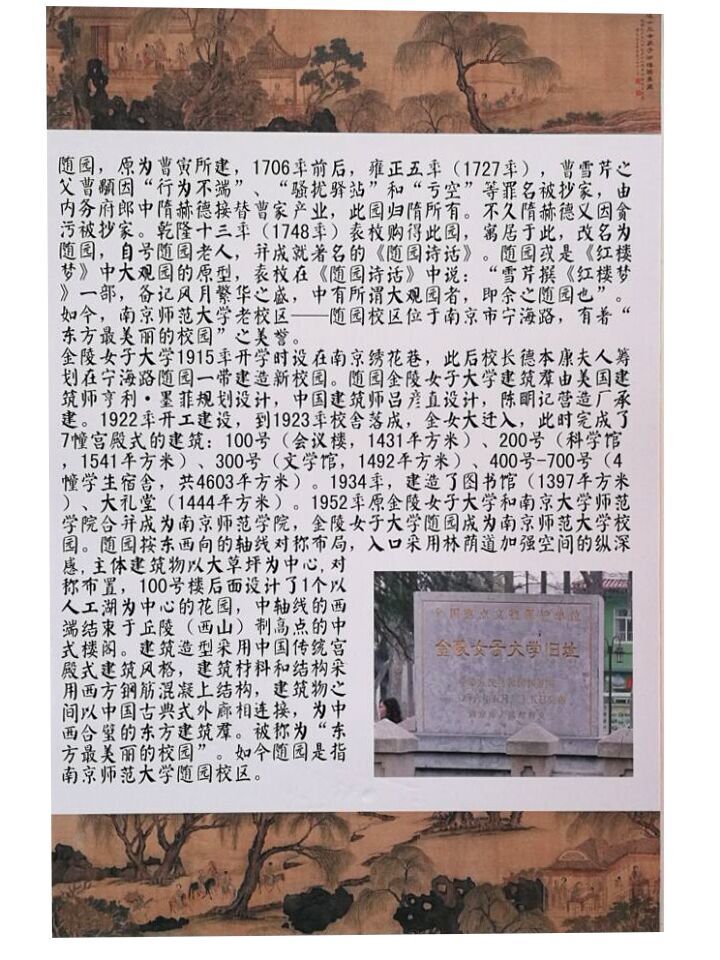 随园，原为曹寅所建，1706年前后，雍正五年（1727年），曹雪芹之
父曹頫因“行为不端”、“骚扰驿站”和“亏空”等罪名被抄家，由
内务府郎中隋赫德接替曹家产业，此园归隋所有。不久隋赫德又因贪
污被抄家。乾隆十三年（1748年）袁枚购得此园，寓居于此，改名为
随园，自号随园老人，并成就著名的《随园诗话》。随园或是《红楼
梦》中大观园的原型，袁枚在《随园诗话》中说：“雪芹撰《红楼梦
》一部，备记风月繁华之盛，中有所谓大观园者，即余之随园也”。
如今，南京师范大学老校区——随园校区位于南京市宁海路，有着“
东方最美丽的校园”之美誉。
金陵女子大学1915年开学时设在南京绣花巷，此后校长德本康夫人筹
划在宁海路随园一带建造新校园。随园金陵女子大学建筑群由美国建
筑师亨利·墨菲规划设计，中国建筑师吕彦直设计，陈明记营造厂承
建。1922年开工建设，到1923年校舍落成，金女大迁入，此时完成了
7幢宫殿式的建筑：100号（会议楼，1431平方米）、200号（科学馆
，1541平方米）、300号（文学馆，1492平方米）、400号-700号（4
幢学生宿舍，共4603平方米）。1934年，建造了图书馆（1397平方米
）、大礼堂（1444平方米）。1952年原金陵女子大学和南京大学师范
学院合并成为南京师范学院，金陵女子大学随园成为南京师范大学校
园。随园按东西向的轴线对称布局，入口采用林荫道加强空间的纵深
感,主体建筑物以大草坪为中心,对
称布置，100号楼后面设计了1个以
人工湖为中心的花园，中轴线的西
端结束于丘陵（西山）制高点的中
式楼阁。建筑造型采用中国传统宫
殿式建筑风格，建筑材料和结构采
用西方钢筋混凝土结构，建筑物之
间以中国古典式外廊相连接，为中
西合璧的东方建筑群。被称为“东
方最美丽的校园”。如今随园是指
南京师范大学随园校区。
全国重点文物保护单位
金陵女子大学旧址